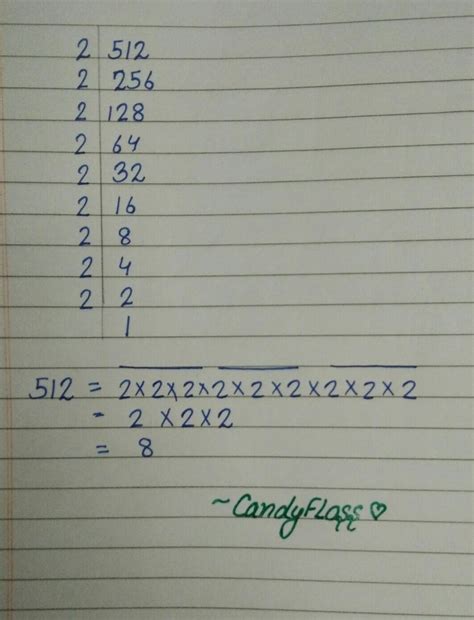 2 | 512
2 | 256
2 | 128
2 | 64
2 | 32
2 | 16
2 | 8
2 | 4
2 | 2
| 1
512 = 2×2×2×2×2×2×2×2×2
= 2 ×2×2
= 8
~CandyFLoss♡